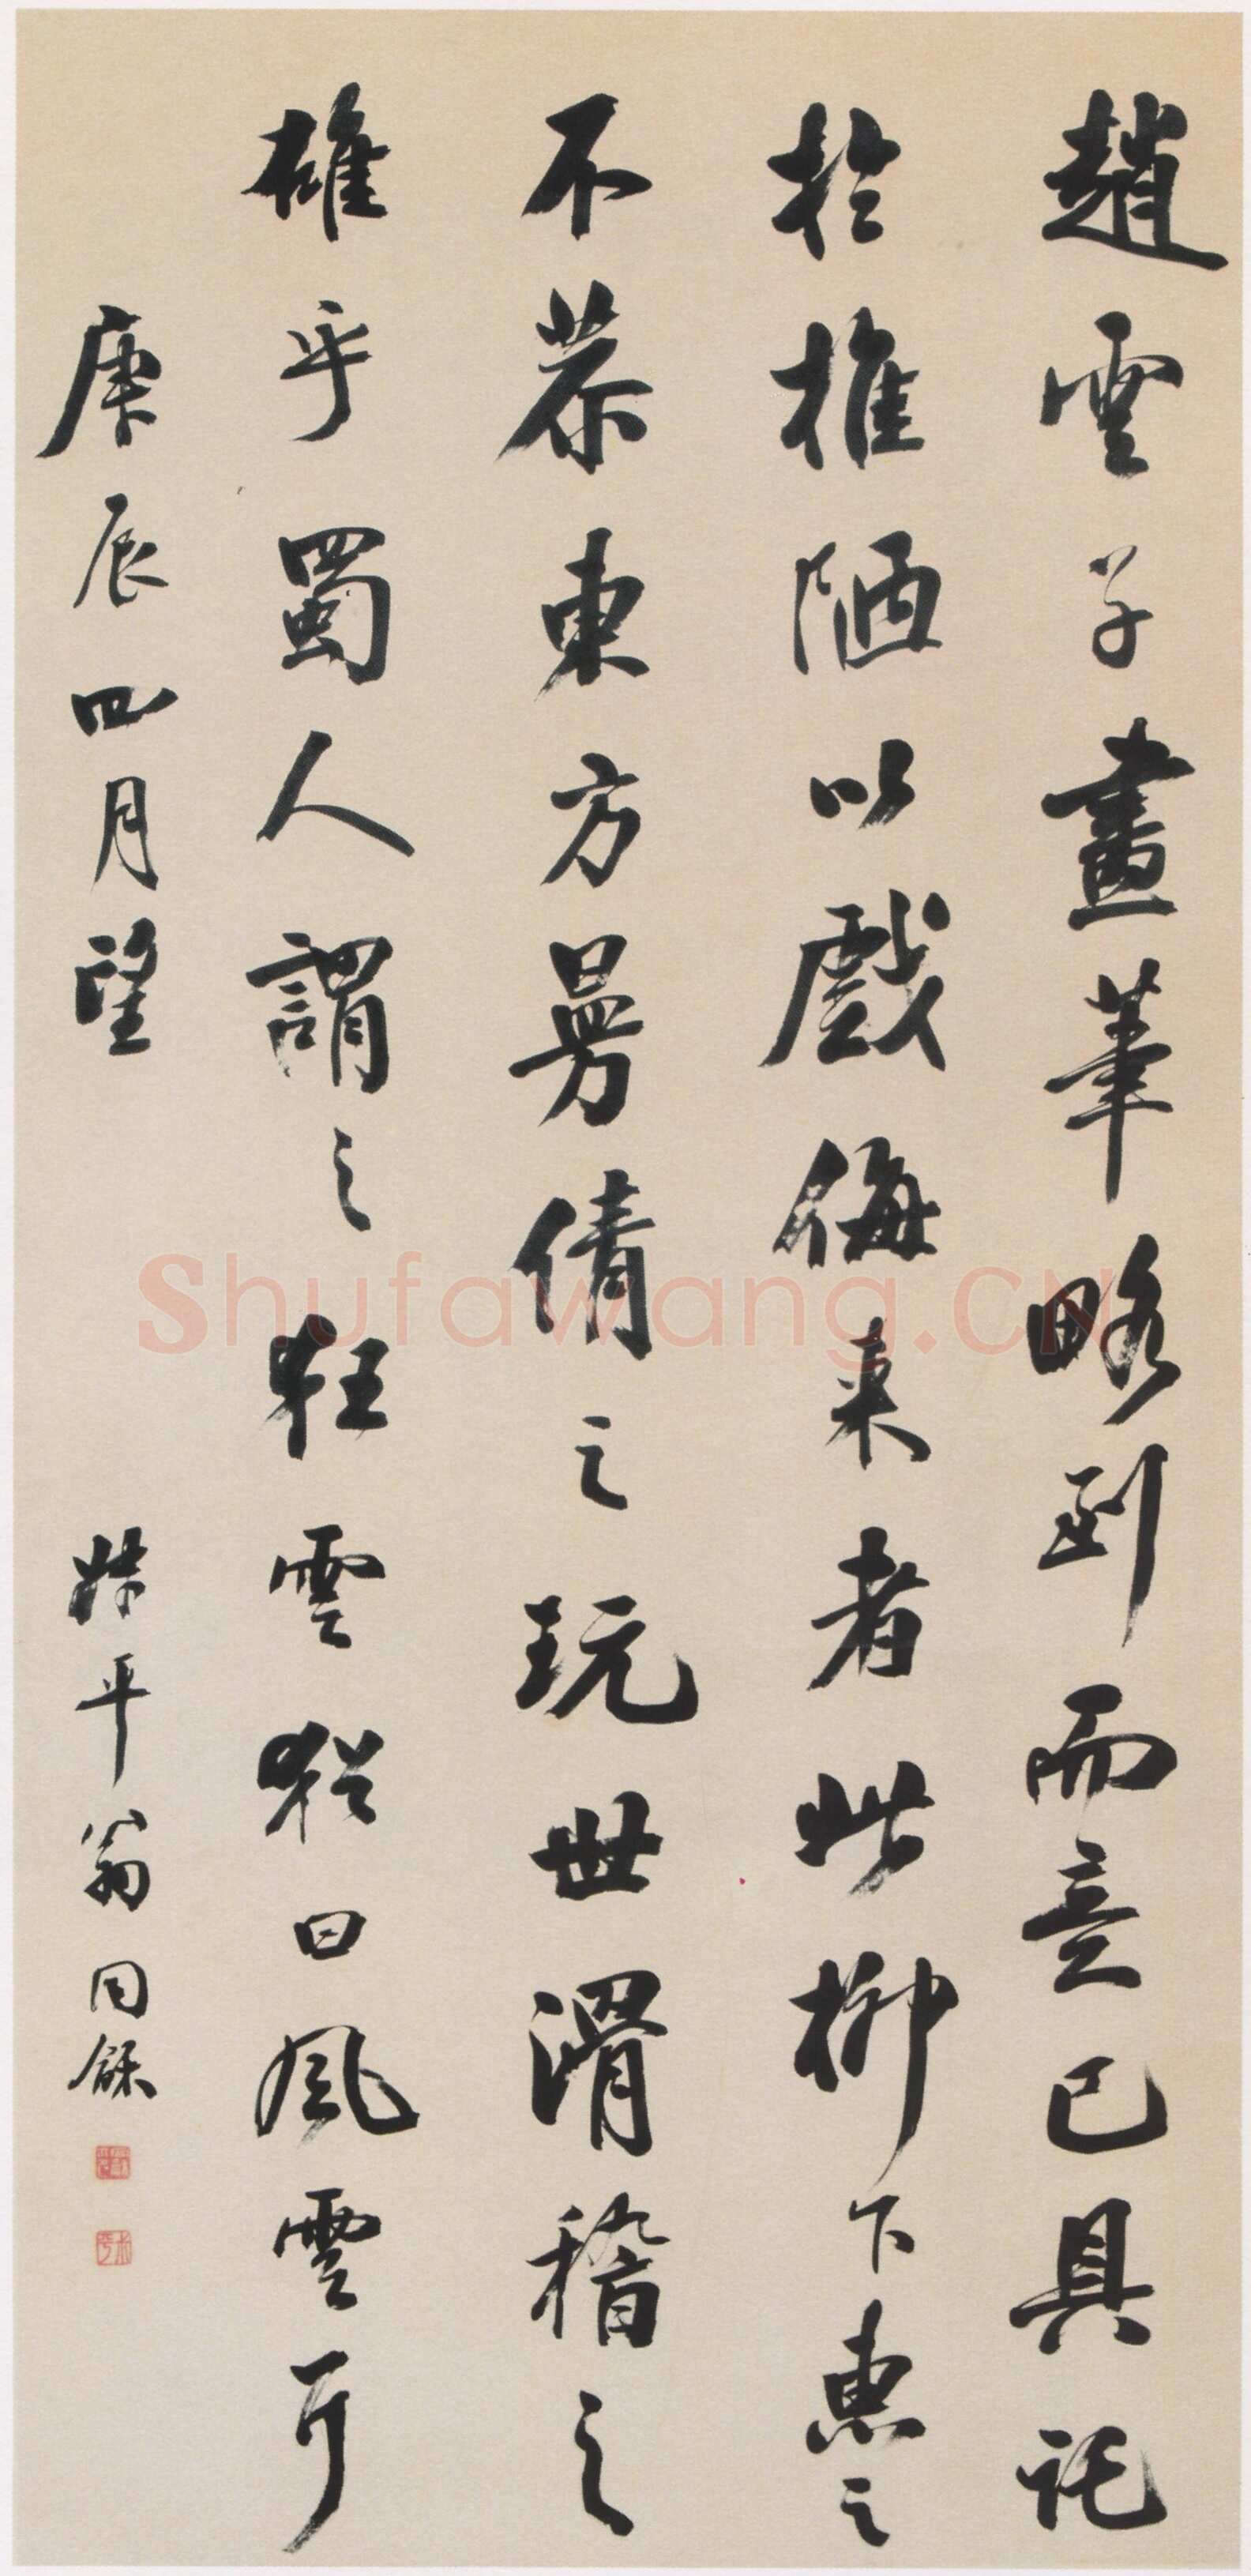 趙雲子畫筆略到而意已具託
於椎陋以戲侮來者此柳下惠之
不恭東方曼倩之玩世滑稽之
雄乎蜀人謂之狂雲猶曰風雲耳
庚辰四月望
叔平翁同龢
Shufawang.CN